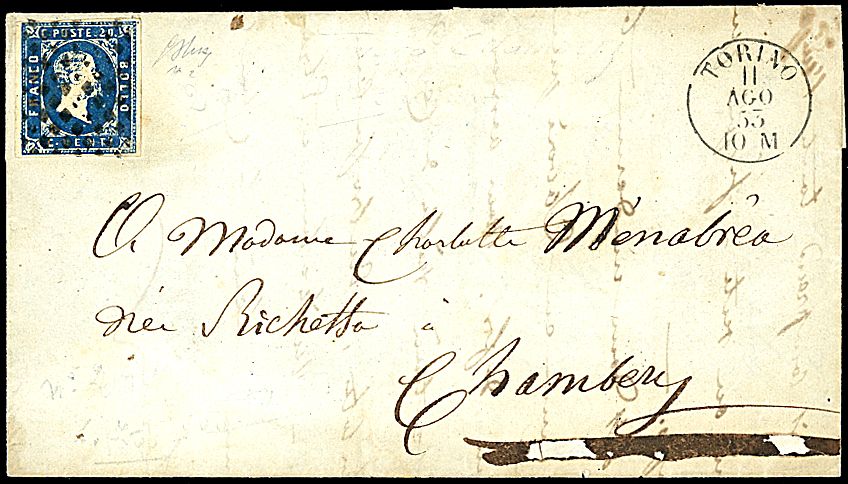 C. POSTE. 20.
FRANCO
BOLLO
C. VENTI
TORINO
11
AGO
53
10 M
A Madame Charlotte Ménabréa
née Richetta à
Chambery